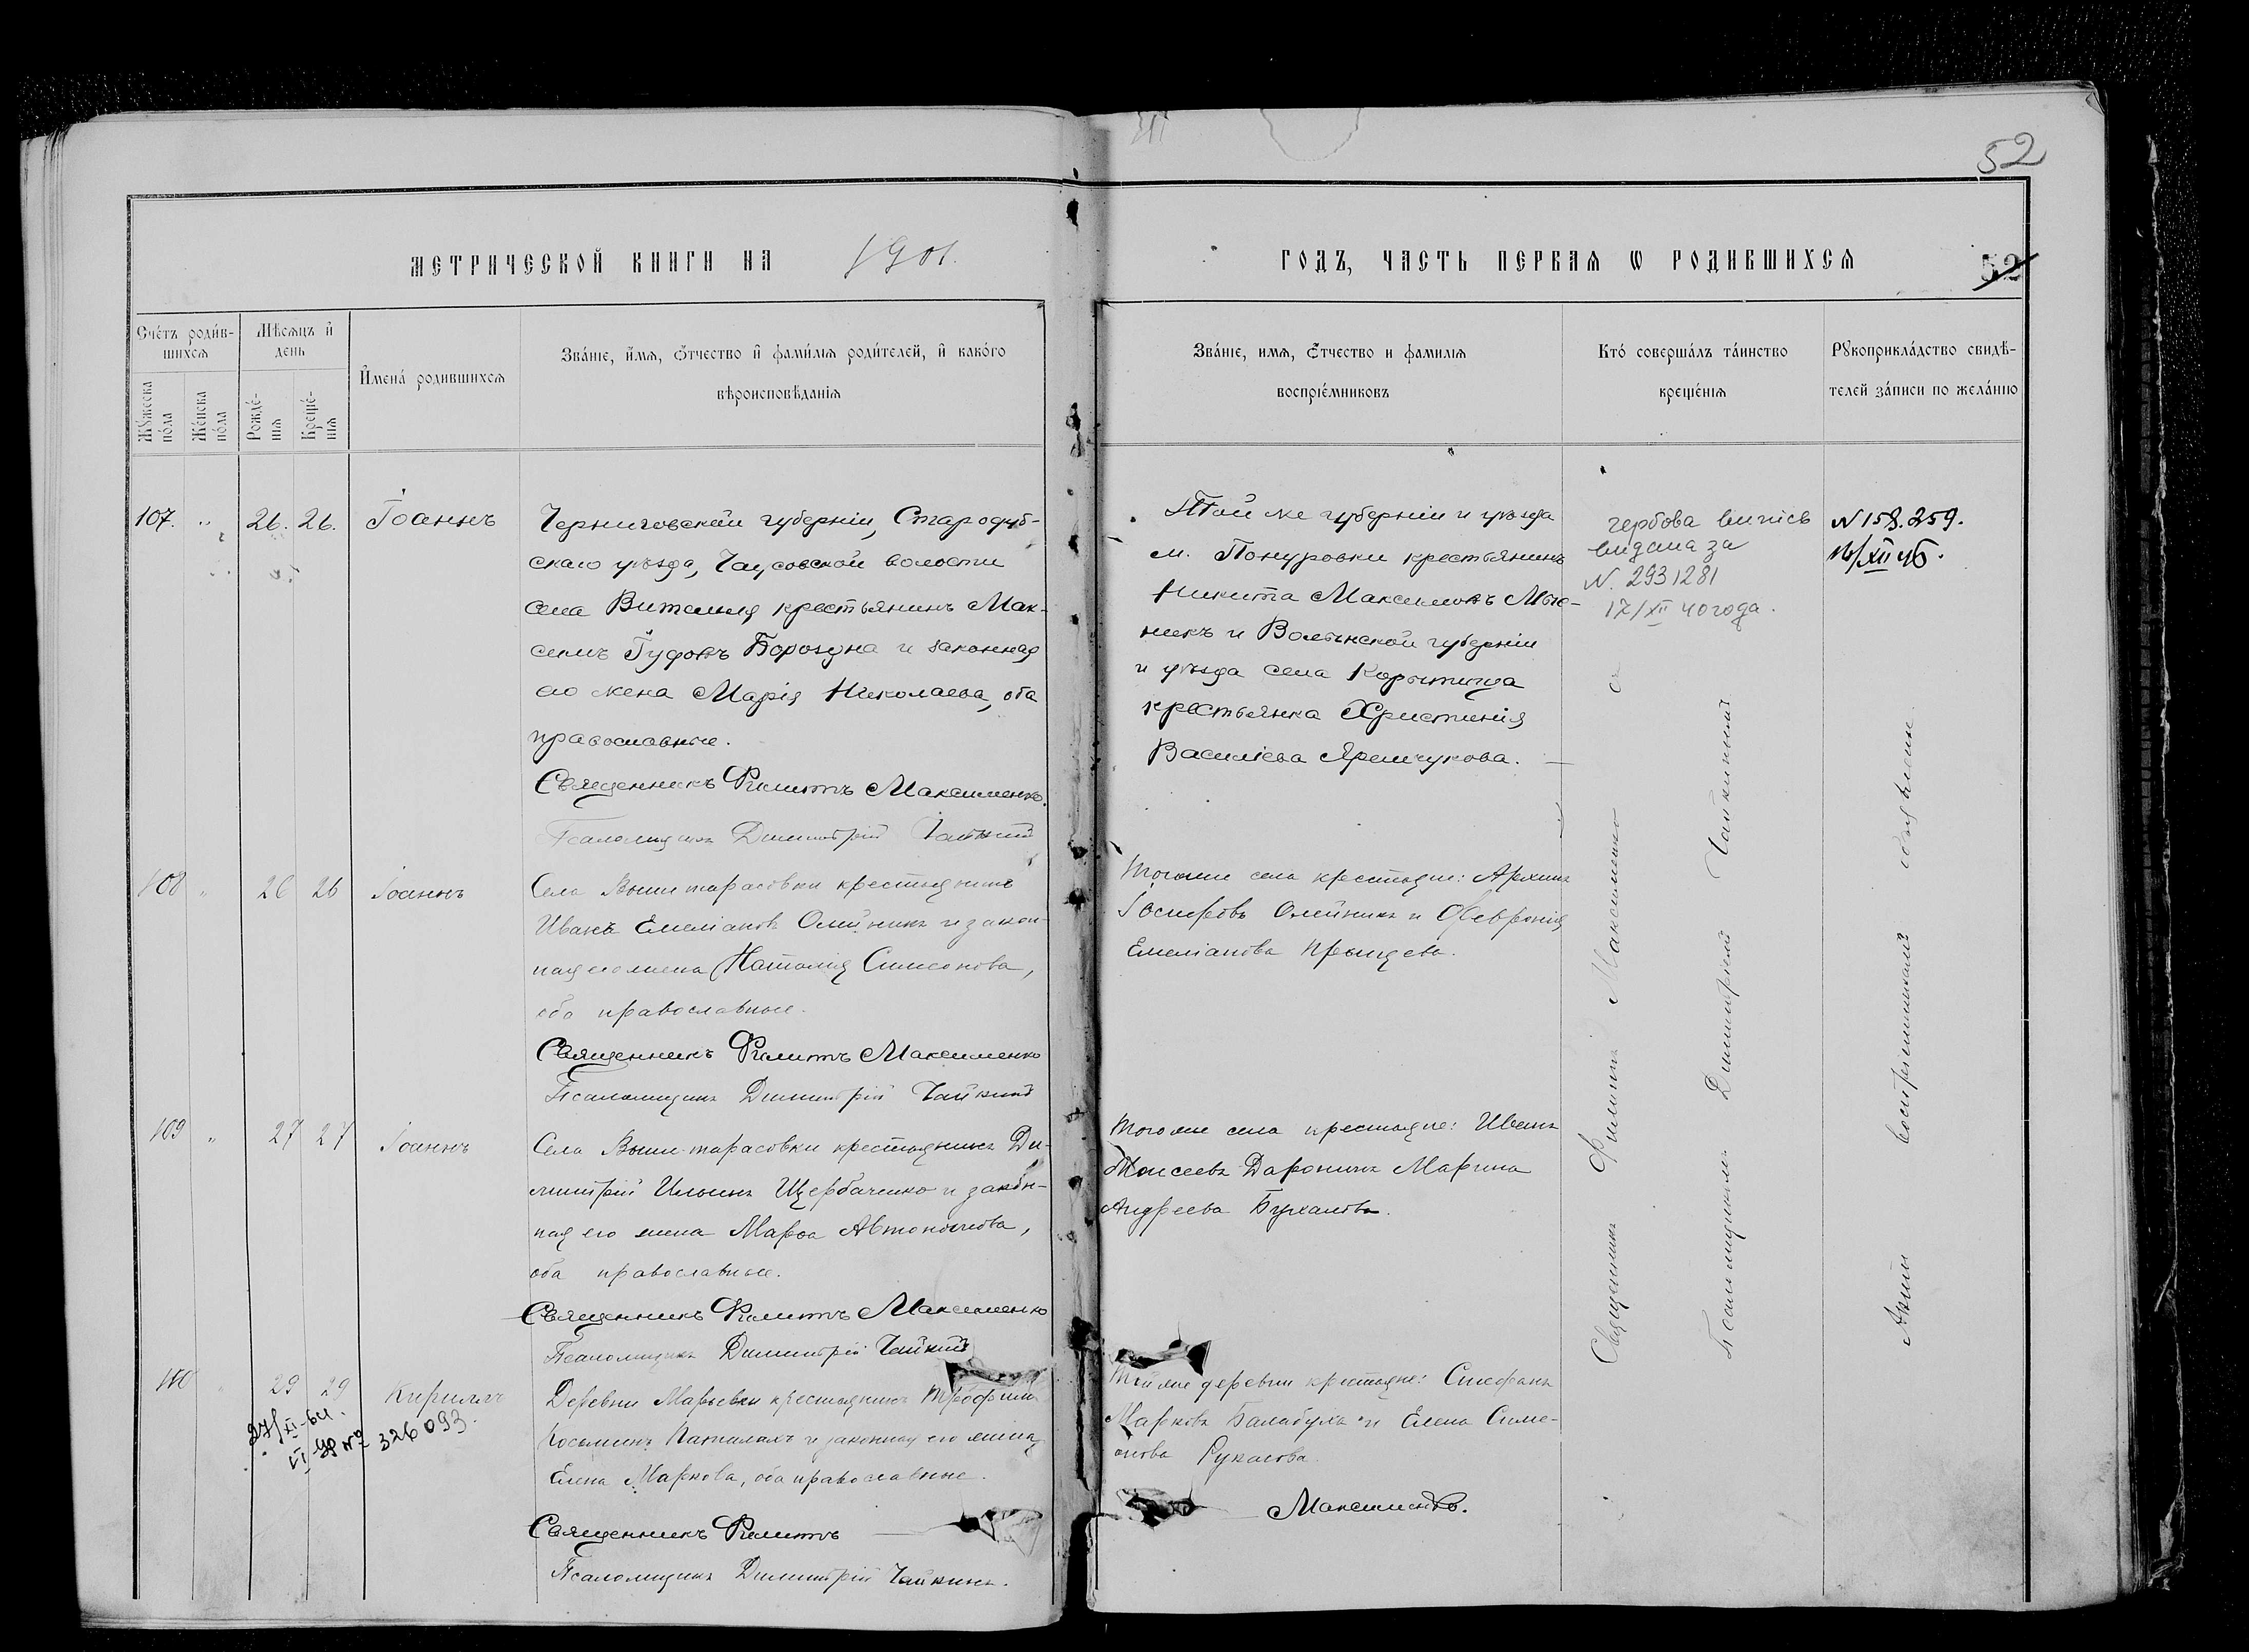 52
МЕТРИЧЕСКОЙ КНИГИ НА 1901.
ГОДЪ, ЧАСТЬ ПЕРВАЯ Ѡ РОДИВШИХСЯ
52
Счетъ родив-
шихся
Мѣсяцъ и
день
Мужеска
пола
Женска
пола
Рожде-
нія
Креще-
нія
Имена родившихся
Званіе, имя, ѻтчество и фамилія родителей, и какого
вѣроисповѣданія
Званіе, имя, ѻтчество и фамилія
воспріемниковъ
Кто совершалъ таинство
крещенія
Рукоприкладство свидѣ-
телей записи по желанію
107. " 26. 26. Іоаннъ
Черниговской губерніи, Стародуб-
скаго уѣзда, Чаусовской волости
села Витемля крестьянинъ Мак-
симъ Іудовъ Бороздна и законная
его жена Марія Николаева, оба
православные.
Священникъ Филиппъ Максименко.
Псаломщикъ Димитрій Чайкинъ
Той же губерніи и уѣзда
м. Понуровки крестьянинъ
Никита Максимовъ
и Волынской губерніи
и уѣзда села Корытница
крестьянка Христинія
Василіева Яремчукова.
гербова випісь
видана за
N. 2931281
17/XII 40 года.
N 158.259.
16/XII 46.
108 " 26 26 Іоаннъ
Села Вышетарасовки крестьянинъ
Иванъ Емеліановъ Олійникъ и закон-
ная его жена Наталія Симеонова,
оба православные.
Священникъ Филиппъ Максименко
Псаломщикъ Димитрій Чайкинъ
Того же села крестьяне: Архипъ
Іосифовъ Олійникъ и Февронія
Емеліанова
109 " 27 27 Іоаннъ
Села Вышетарасовки крестьянинъ Ди-
митрій Ильинъ Щербаченко и закон-
ная его жена Марѳа Автономова,
оба православные.
Священникъ Филиппъ Максименко
Псаломщикъ Димитрій Чайкинъ
Того же села крестьяне: Иванъ
Моисеевъ Марина
Андреева
110 " 29 29 Кириллъ
27/XI-64.
VI-ЯР № 326093.
Деревни Марьевки крестьянинъ Трофимъ
Косьминъ и законная его жена
Елена Маркова, оба православные.
Священникъ Филиппъ
Псаломщикъ Димитрій Чайкинъ.
Той же деревни крестьяне: Стефанъ
Марковъ Балабуха и Елена Симе-
онова
Максименко.
Священникъ Филиппъ Максименко съ
Псаломщикомъ Димитріемъ Чайкинымъ
воспріемниками